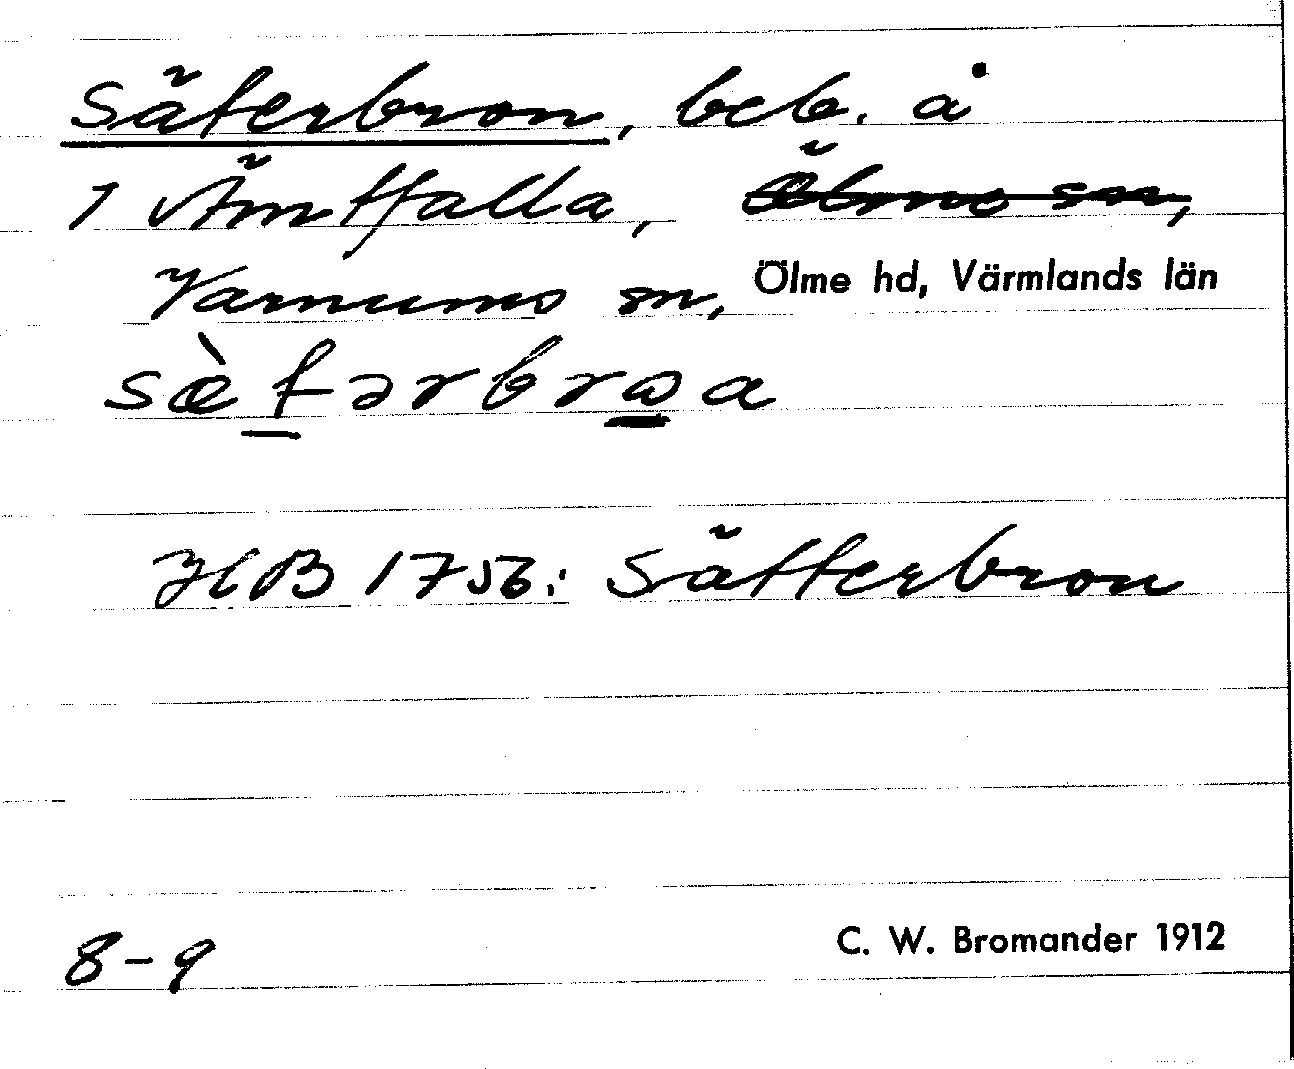 Säterbron, beb. å
1 Ämtfalla, Ölme sn,
Varnums sn, Ölme hd, Värmlands län
sὲtərbrωa
HB 1756: Sätterbron
8-9
C. W. Bromander 1912